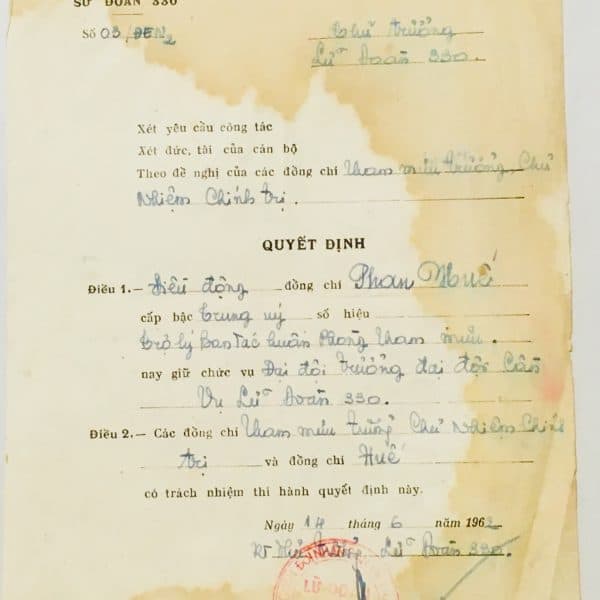 SƯ ĐOÀN 330
Số 03/ĐEN2
Thủ trưởng
Lữ Đoàn 330.
Xét yêu cầu công tác
Xét đức, tài của cán bộ
Theo đề nghị của các đồng chí tham mưu trưởng, Chủ
Nhiệm Chính trị.
QUYẾT ĐỊNH
Điều 1.— Điều động đồng chí Phan Huế
cấp bậc Trung uý số hiệu
Trợ lý Ban Tác huấn Phòng tham mưu.
nay giữ chức vụ Đại đội trưởng đại đội Cần
Vụ Lữ Đoàn 330.
Điều 2.— Các đồng chí tham mưu trưởng Chủ Nhiệm Chính
trị và đồng chí Huế
có trách nhiệm thi hành quyết định này.
Ngày 14 tháng 6 năm 1962
Thủ trưởng Lữ Đoàn 330.